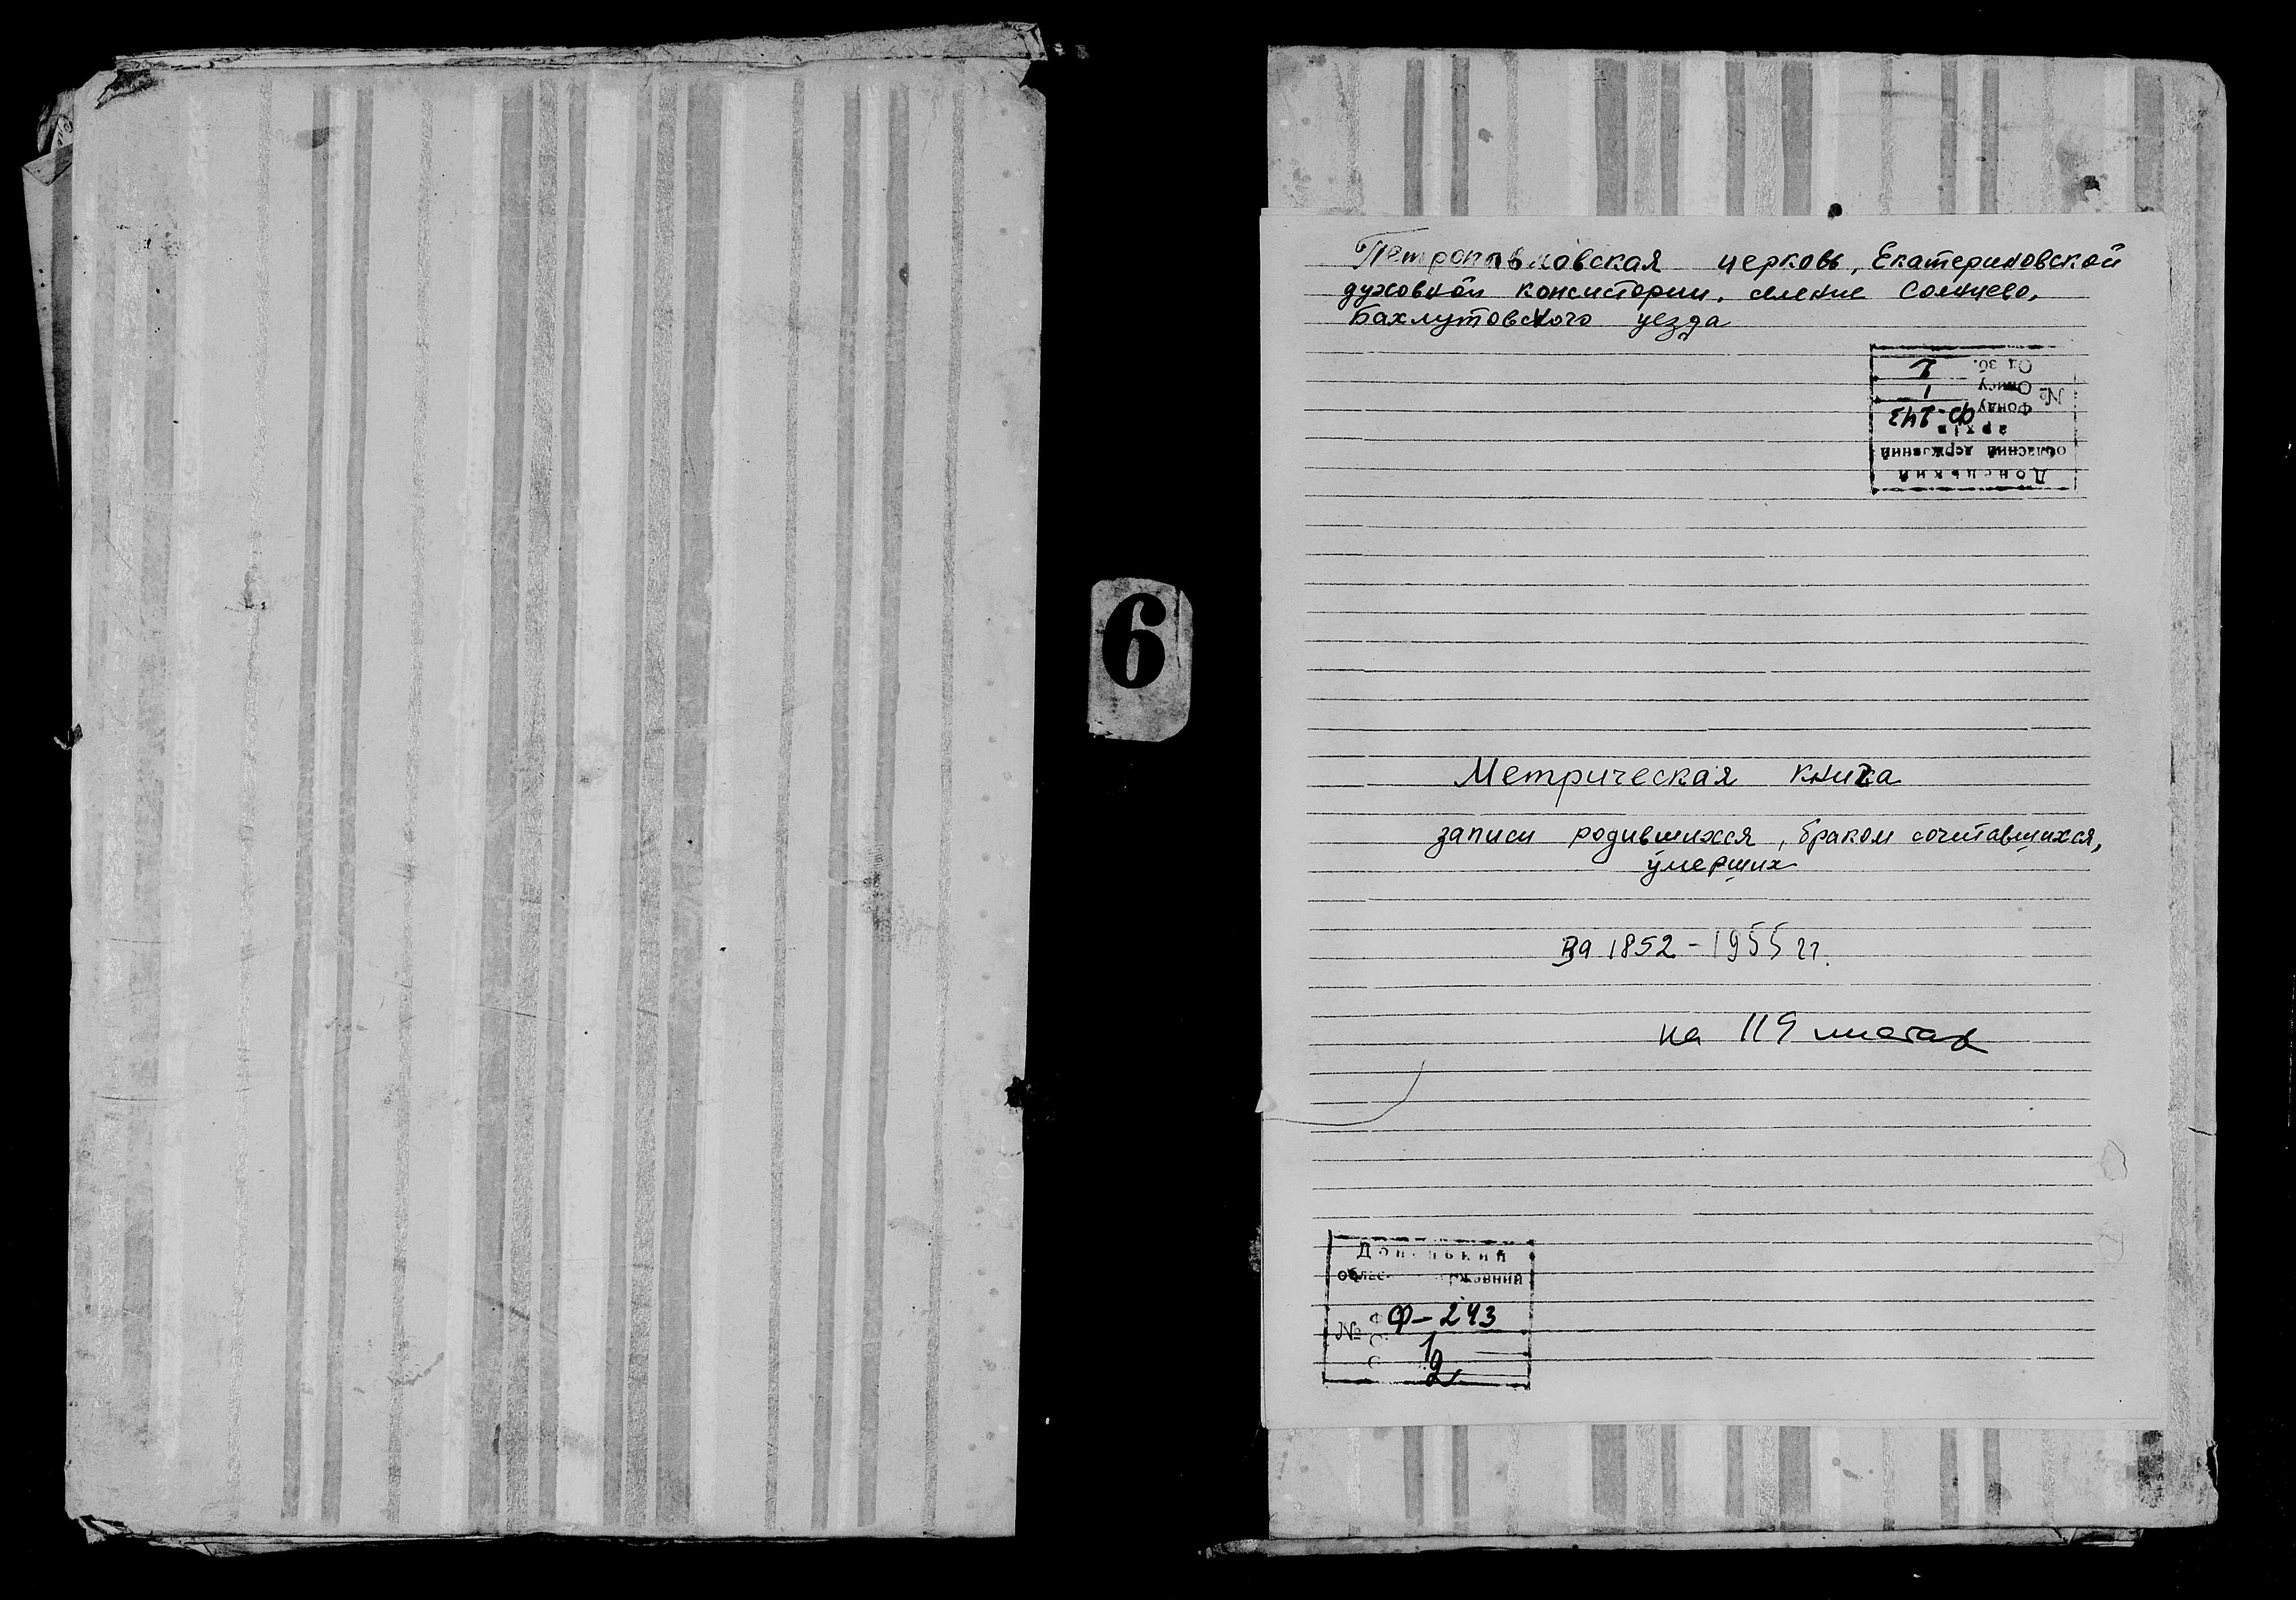 6
Петропавловская церковь, Екатериновской
духовной консистории, селение Солнцево,
Бахмутовского уезда
Донецький
обласний державний
архів
№ Фонду Ф-243
Опису 1
Од. зб. 2
Метрическая книга
записи родившихся, браком сочитавшихся,
умерших
За 1852 - 1955 гг.
на 119 листах
Донецький
Ф-243
№
1
2